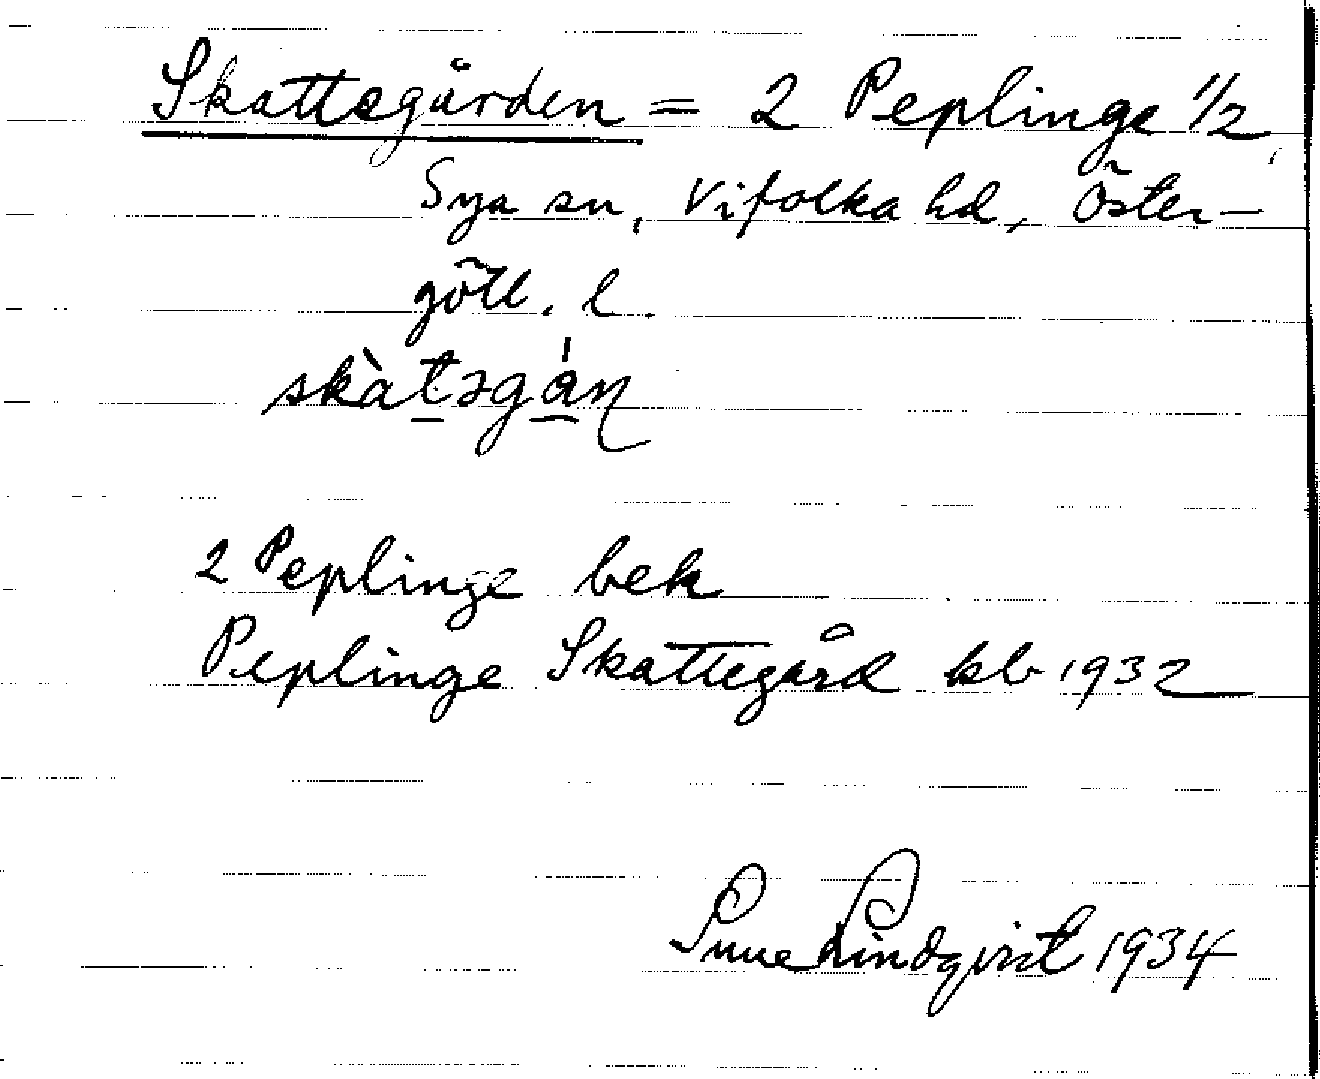 Skattegården = 2 Peplinge 1/2,
Sya sn, Vifolka hd, Öster-
götl. l.
skàtəgån
2 Peplinge bek
Peplinge Skattegård kb 1932
Sune Lindqvist 1934